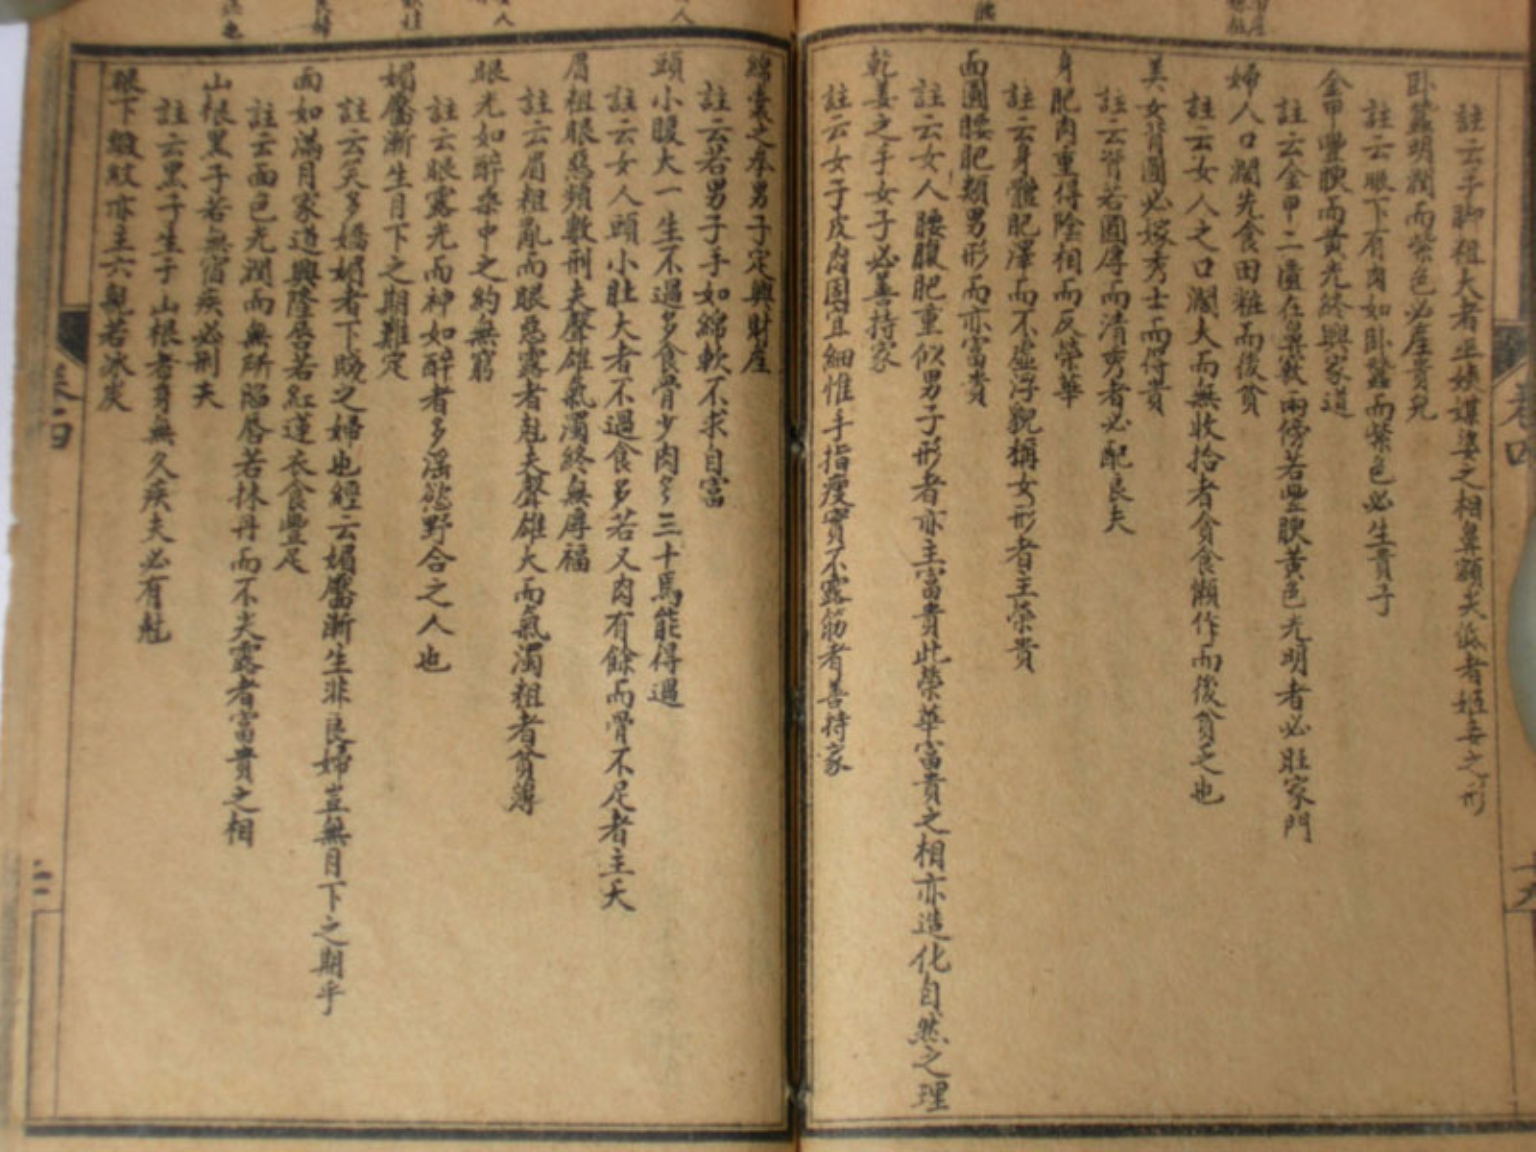 註云手脚粗大者巫姨媒婆之相鼻額尖低者姬妾之形
卧蠶明潤而紫色必産貴兒
註云眼下有肉如卧蠶而紫色必生貴子
金甲豐腴而黄光終興家道
註云金甲二匱在鼻孔两傍若豐腴黄色光明者必旺家門
婦人口濶先食田粧而後貧
註云女人之口濶大而無收拾者貪食懶作而後貧之也
美女背圓必嫁秀士而得貴
註云背若圓厚而清秀者必配良夫
身肥肉重得陰相而反榮華
註云身體肥澤而不虚浮貌稱女形者主榮貴
面圓腰肥類男形而亦富貴
註云女人腰腹肥重似男子形者亦主富貴此榮華富貴之相亦造化自然之理
乾姜之手女子必善持家
註云女子皮肉固宜細惟手指瘦實不露筋者善持家
綿囊之拳男子定興財産
註云若男子手如綿軟不求自富
頭小腹大一生不過多食骨少肉多三十焉能得過
註云女人頭小肚大者不過食多若又肉有餘而骨不足者主夭
眉粗眼惡頻數刑夫聲雄氣濁終無厚福
註云眉粗亂而眼惡露者尅夫聲雄大而氣濁粗者貧薄
眼光如醉桑中之約無窮
註云眼露光而神如醉者多淫慾野合之人也
媚靨漸生月下之期難定
註云笑多嬌媚者下賤之婦也經云媚靨漸生非良婦豈無月下之期乎
面如滿月家道興隆唇若紅蓮衣食豐足
註云面色光潤而無所陷唇若抹丹而不尖露者富貴之相
山根黑子若無宿疾必刑夫
註云黑子生于山根者身無久疾夫必有尅
眼下皺紋亦主六親若冰炭
卷四
十九